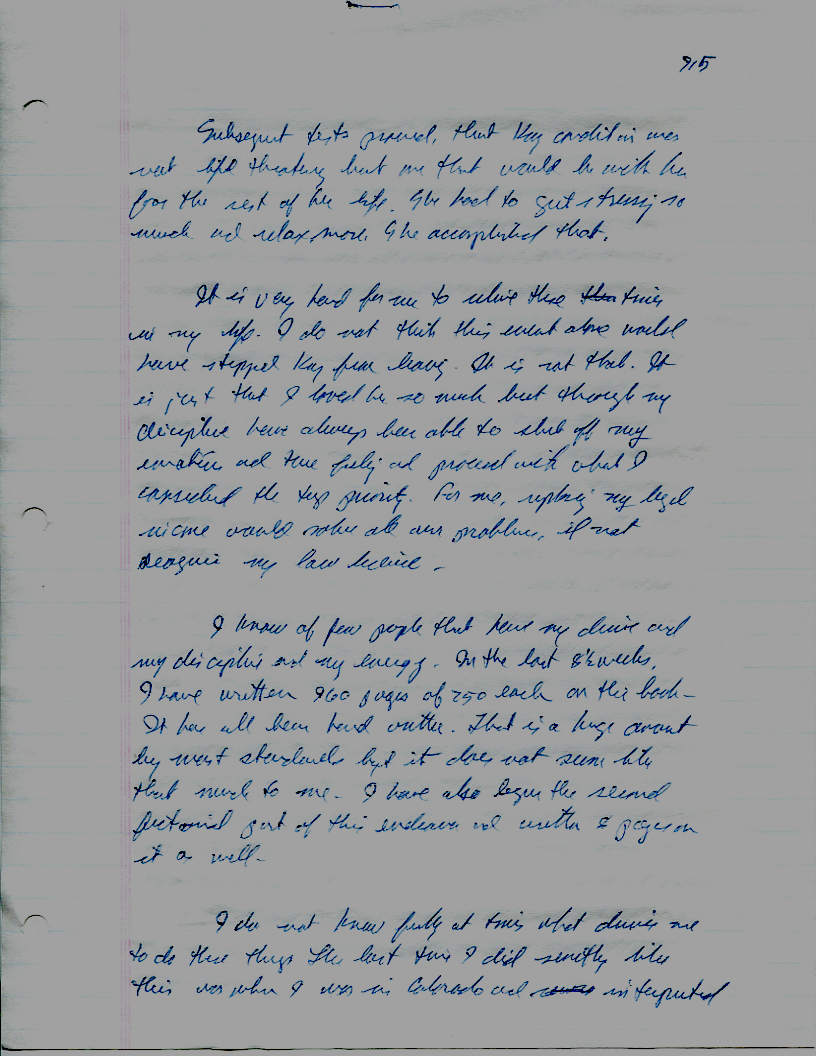 915
Subsequent tests proved, that Kay condition was
not life threating but one that would be with her
for the rest of her life. She had to quit stressing so
much and relax more. She accomplished that.
It is very hard for me to relive these times
in my life. I do not think this event alone would
have stopped Kay from leaving. It is not that. It
is just that I loved her so much but through my
discipline have always been able to shut off my
emotion and true feeling and proceed with what I
considered the top priority. For me, replacing my legal
income would solve all our problems, if not
reaquire my law license.
I know of few people that have my drive and
my discipline and my energy. In the last 8½ weeks,
I have written 960 pages of 250 each on this book-
It has all been hand written. That is a huge amount
by most standards but it does not seem like
that much to me. I have also begun the second
fictional part of this endeavor and written 8 pages on
it as well-
I do not know fully at times what drives me
to do these things The last time I did something like
this was when I was in Colorado and interpreted